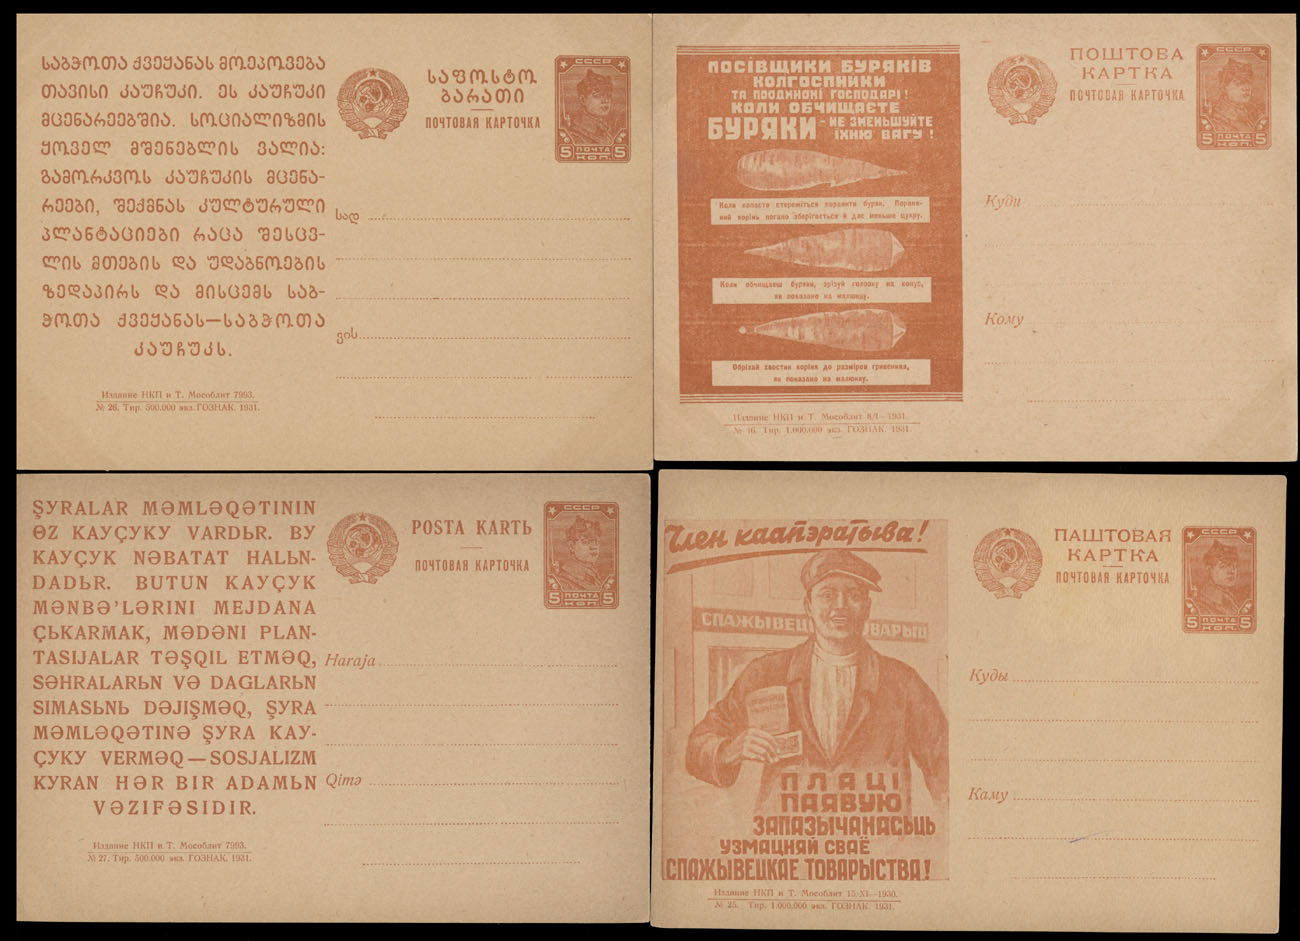 ᲡᲐᲑᲭᲝᲗᲐ ᲥᲕᲔᲧᲐᲜᲐᲡ ᲛᲝᲔᲞᲝᲕᲔᲑᲐ
ᲗᲐᲕᲘᲡᲘ ᲙᲐᲣᲩᲣᲙᲘ. ᲔᲡ ᲙᲐᲣᲩᲣᲙᲘ
ᲛᲪᲔᲜᲐᲠᲔᲔᲑᲨᲘᲐ. ᲡᲝᲪᲘᲐᲚᲘᲖᲛᲘᲡ
ᲧᲝᲕᲔᲚ ᲛᲨᲔᲜᲔᲑᲚᲘᲡ ᲕᲐᲚᲘᲐ:
ᲒᲐᲛᲝᲠᲙᲕᲝᲡ ᲙᲐᲣᲩᲣᲙᲘᲡ ᲛᲪᲔᲜᲐ-
ᲠᲔᲔᲑᲘ, ᲨᲔᲥᲛᲜᲐᲡ ᲙᲣᲚᲢᲣᲠᲣᲚᲘ
ᲞᲚᲐᲜᲢᲐᲪᲘᲔᲑᲘ ᲠᲐᲪᲐ ᲨᲔᲡᲪᲕ-
ᲚᲘᲡ ᲛᲗᲔᲑᲘᲡ ᲓᲐ ᲣᲓᲐᲑᲜᲝᲔᲑᲘᲡ
ᲖᲔᲓᲐᲞᲘᲠᲡ ᲓᲐ ᲛᲘᲡᲪᲔᲛᲡ ᲡᲐᲑ-
ᲭᲝᲗᲐ ᲥᲕᲔᲧᲐᲜᲐᲡ—ᲡᲐᲑᲭᲝᲗᲐ
ᲙᲐᲣᲩᲣᲙᲡ.
Издание НКП и Т. Мособлит 7993.
№ 26. Тир. 500.000 экз. ГОЗНАК. 1931.
ᲡᲐᲤᲝᲡᲢᲝ
ᲑᲐᲠᲐᲗᲘ
ПОЧТОВАЯ КАРТОЧКА
СССР
5 ПОЧТА 5
КОП.
სად
ვის
ПОСІВЩИКИ БУРЯКІВ
КОЛГОСПНИКИ
ТА ПООДИНОКІ ГОСПОДАРІ!
КОЛИ ОБЧИЩАЄТЕ
БУРЯКИ - НЕ ЗМЕНЬШУЙТЕ
ЇХНЮ ВАГУ!
Коли копаєте стережіться поранити буряк. Поране-
ний корінь погано зберігається й дає меньше цукру.
Коли обчищаєш буряки, зрізуй головку на конус,
як показано на малюнку.
Обрізай хвостик коріня до размірів гривеника,
як показано на малюнку.
Издание НКП и Т. Мособлит 8/I—1931.
№ 16. Тир. 1.000.000 экз. ГОЗНАК. 1931.
ПОШТОВА
КАРТКА
ПОЧТОВАЯ КАРТОЧКА
СССР
5 ПОЧТА 5
КОП.
Куди
Кому
ŞYRALAR MƏMLƏQƏTININ
ƟZ KAYÇYKY VARDЬR. BY
KAYÇYK NƏBATAT HALЬN-
DADЬR. BUTUN KAYÇYK
MƏNBƏ'LƏRINI MEJDANA
ÇЬKARMAK, MƏDƏNI PLAN-
TASIJALAR TƏŞQIL ETMƏQ,
SƏHRALARЬN VƏ DAGLARЬN
SIMASЬNЬ DƏJIŞMƏQ, ŞYRA
MƏMLƏQƏTINƏ ŞYRA KAY-
ÇYKY VERMƏQ—SOSJALIZM
KYRAN HƏR BIR ADAMЬN
VƏZIFƏSIDIR.
Издание НКП и Т. Мособлит 7993.
№ 27. Тир. 500.000 экз. ГОЗНАК. 1931.
POSTA KARTЬ
ПОЧТОВАЯ КАРТОЧКА
СССР
5 ПОЧТА 5
КОП.
Haraja
Qimə
Член каапэратыва!
СПАЖЫВЕЦ ТОВАРЫШ
ПЛАЦІ
ПАЯВУЮ
ЗАПАЗЫЧАНАСЬЦЬ
УЗМАЦНЯЙ СВАЁ
СПАЖЫВЕЦКАЕ ТОВАРЫСТВА!
Издание НКП и Т. Мособлит 15/XI.—1930.
№ 25. Тир. 1.000.000 экз. ГОЗНАК. 1931.
ПАШТОВАЯ
КАРТКА
ПОЧТОВАЯ КАРТОЧКА
СССР
5 ПОЧТА 5
КОП.
Куды
Каму